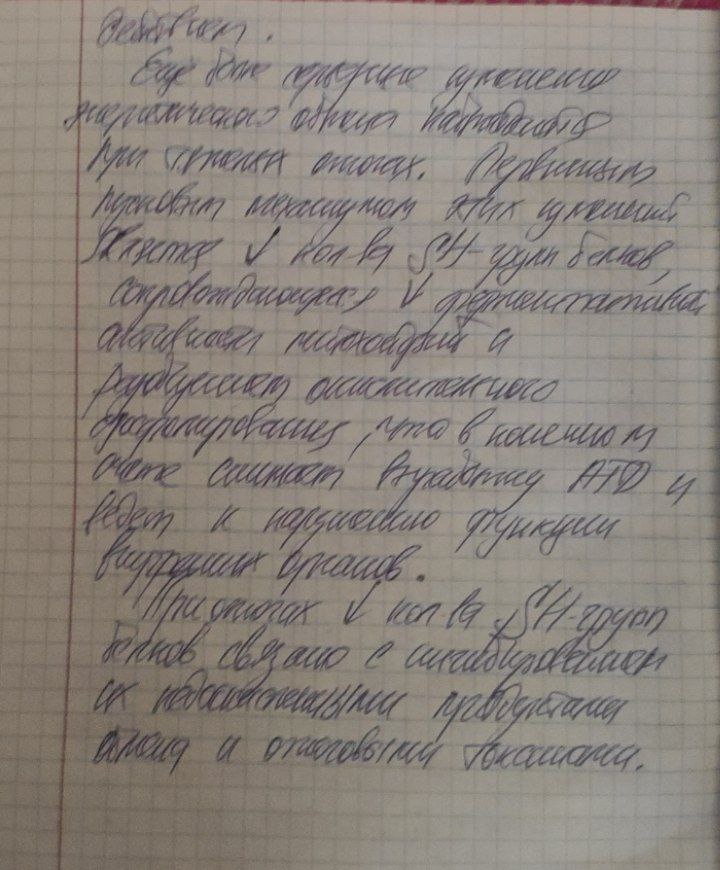 действием.
Ещё более серьезные изменения
энергетического обмена наблюдаются
при тяжелых ожогах. Первичным
пусковым механизмом этих изменений
является ↓ кол-ва SH-групп белков,
сопровождающееся ↓ ферментативной
активности митохондрий и
разобщением окислительного
фосфорилирования, что в конечном
счете снижает выработку АТФ и
ведет к нарушению функции
внутренних органов.
При ожогах ↓ кол-ва SH-групп
белков связано с ингибированием
их недоокисленными продуктами
обмена и ожоговыми токсинами.